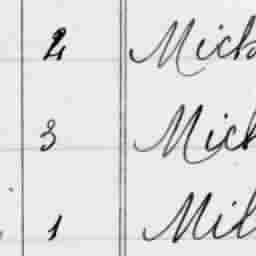 2 Mich
3 Mich
1 Mil